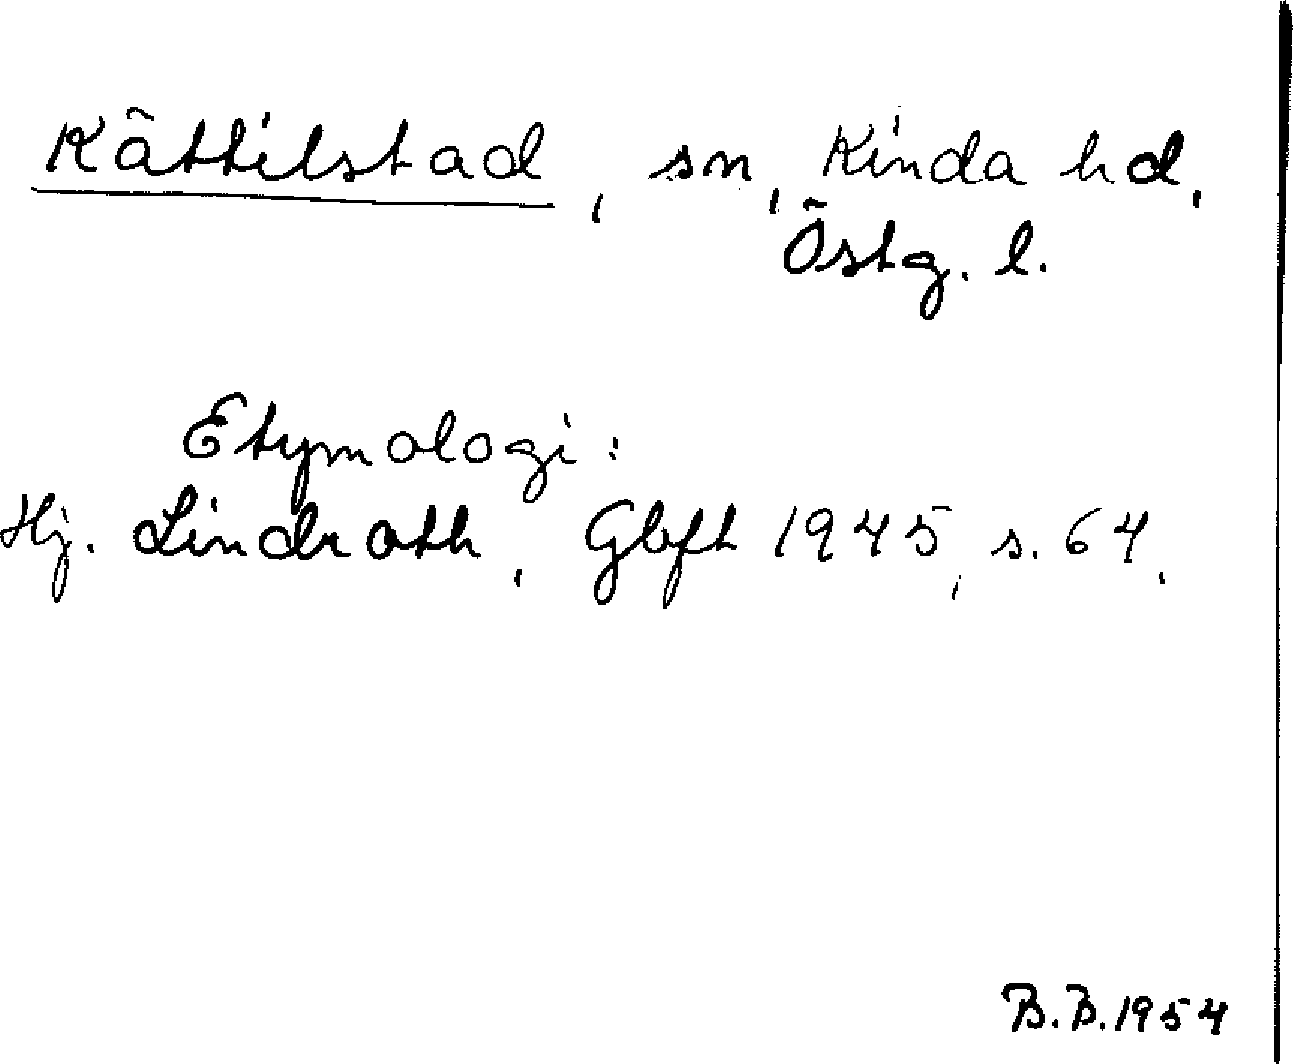 Kättilstad, sn, Kinda hd,
Östg. l.
Etymologi:
Hj. Lindroth, Gbft 1945, s. 64.
B.B. 1954